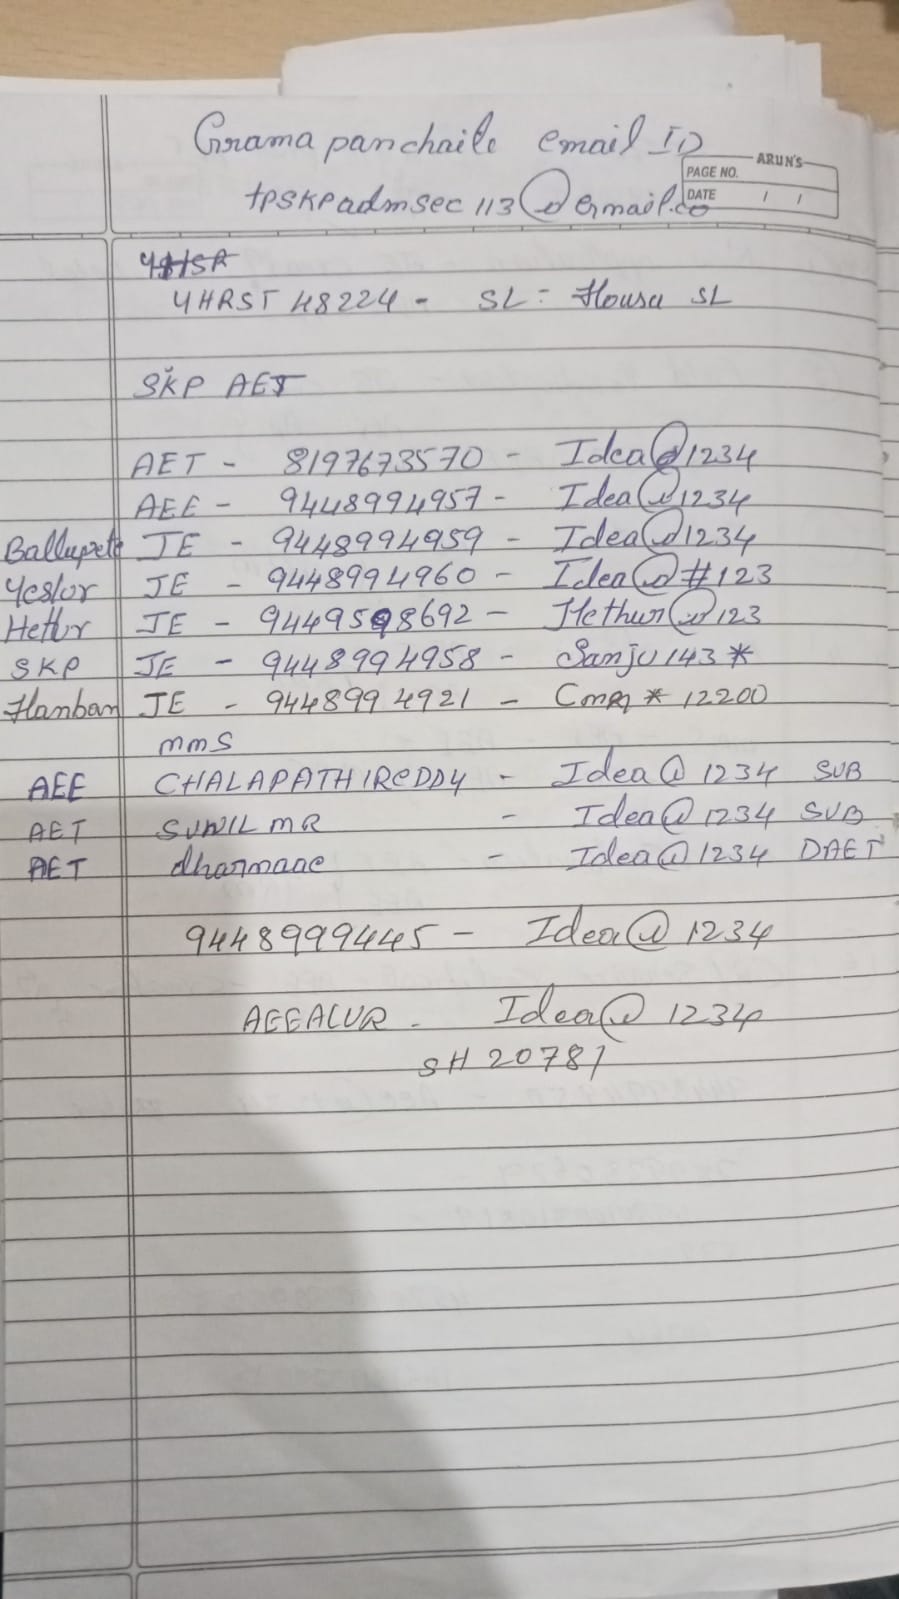 Grama panchaite email ID
ARUN'S
PAGE NO.
DATE / /
tpskpadmsec113@gmail.co
YHSR
YHRST 48224 - SL = House SL
SKP AET
AET - 8197673570 - Idea@1234
AEE - 9448994957 - Idea@1234
Ballupete JE - 9448994959 - Idea@1234
Yeslor JE - 9448994960 - Idea@#123
Hettur JE - 9449598692 - Hethur@123
SKP JE - 9448994958 - Sanju143*
Hanban JE - 9448994921 - * 12200
mmS
AEE CHALAPATHIREDDY - Idea@1234 SUB
AET SUNIL MR - Idea@1234 SUB
AET dharmane - Idea@1234 DAET
9448999445 - Idea@1234
AEEALUR - Idea@1234
SH 20781